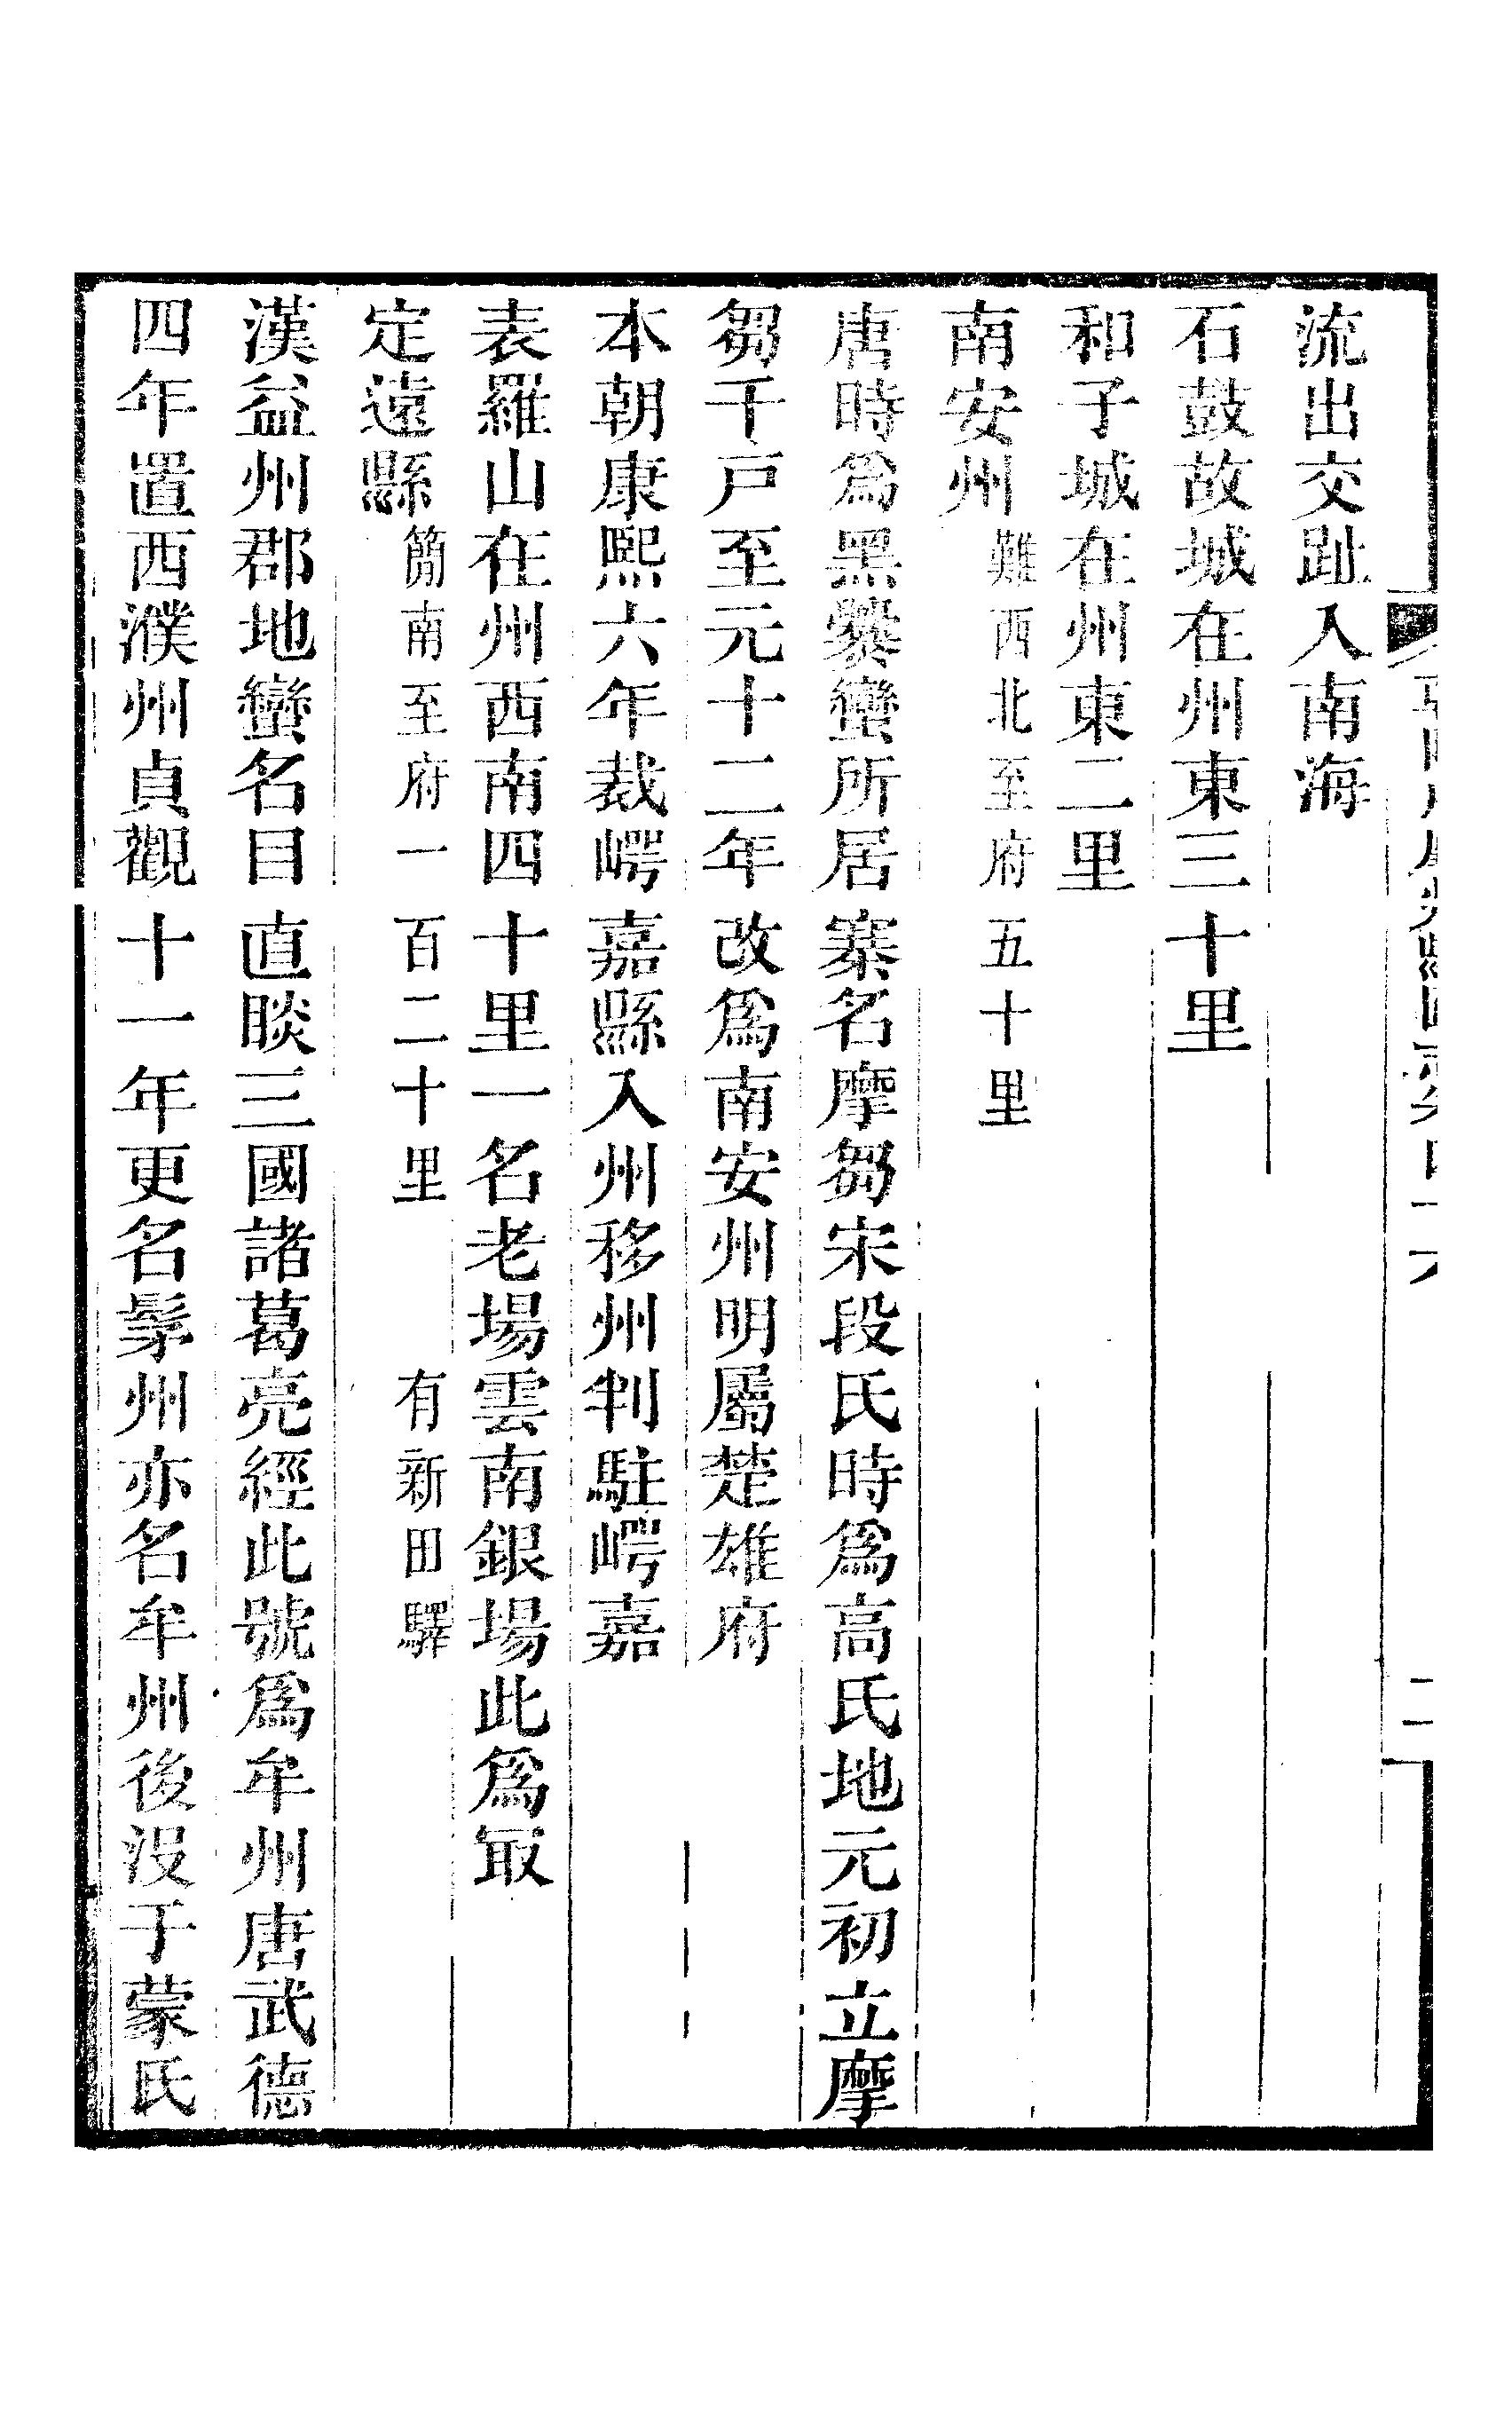 流出交趾入南海
石鼓故城在州東三十里
和子城在州東二里
南安州 難西北至府五十里
唐時為黑爨蠻所居寨名摩芻宋段氏時為高氏地元初立摩
芻千戸至元十二年改為南安州明屬楚雄府
本朝康熙六年裁㟧嘉縣入州移州判駐㟧嘉
表羅山在州西南四十里一名老場雲南銀場此為冣
定遠縣 簡南至府一百二十里 有新田驛
漢益州郡地蠻名目直睒三國諸葛亮經此號為牟州唐武德
四年置西濮州貞觀十一年更名髳州亦名牟州後没于蒙氏
二